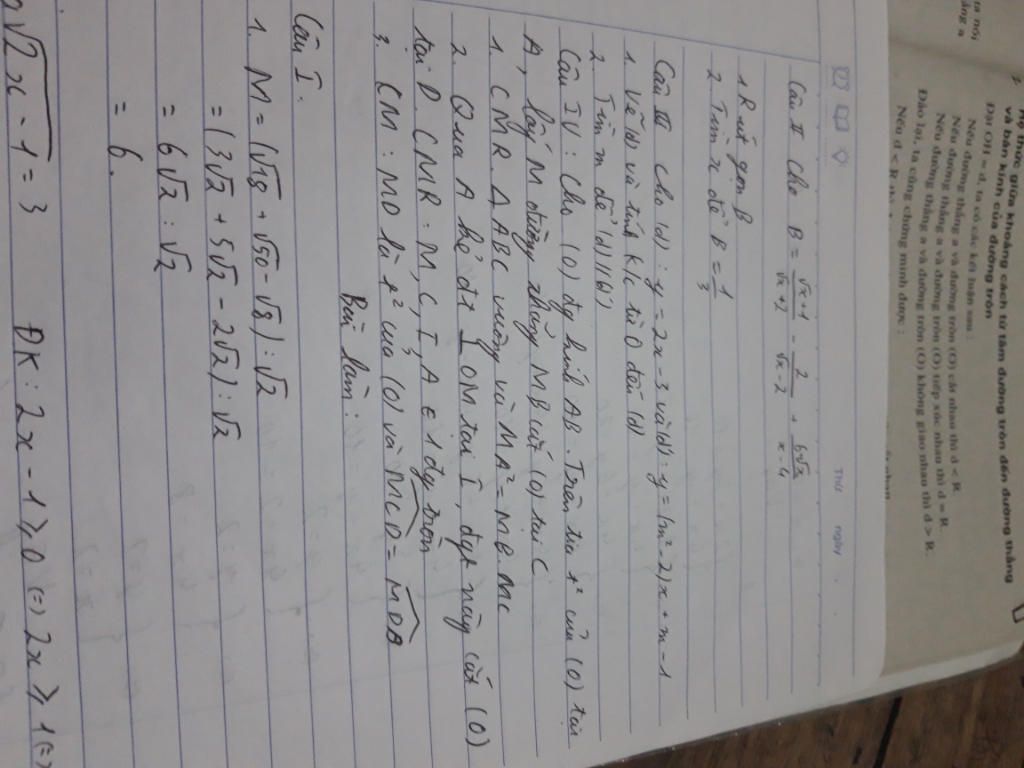 và bán kính của đường tròn
Nếu đường thẳng a và đường tròn (O) cắt nhau thì d < R.
Nếu đường thẳng a và đường tròn (O) tiếp xúc nhau thì d = R.
Nếu đường thẳng a và đường tròn (O) không giao nhau thì d > R.
Đảo lại, ta cũng chứng minh được :
Thứ ngày
Câu II Cho B = (√x+1)/(√x+2) - 2/(√x-2) + /(x-4)
1. Rút gọn B
2. Tìm x để B = -1/3
Câu III Cho (d): y = 2x - 3 và (d'): y = (m²-2)x + m - 1
1. Vẽ (d) và tính k/c từ O đến (d)
2. Tìm m để (d)//(d')
Câu IV: Cho (O) đg kính AB. Trên tia t² của (O) tại
A, lấy M đường thẳng MB cắt (O) tại C
1. CMR. ΔABC vuông và MA² = MB.MC
2. Qua A kẻ đt ⊥ OM tại I, đgt này cắt (O)
tại D. CMR: M, C, I, A ∈ 1 đg tròn
3. CM: MD là t² của (O) và MCD = MDB
Bài làm:
Câu I.
1. M = (√18 + √50 - √8) : √2
= (3√2 + 5√2 - 2√2) : √2
= 6√2 : √2
= 6.
√2x - 1 = 3 ĐK: 2x - 1 ≥ 0 (=) 2x ≥ 1 (=)